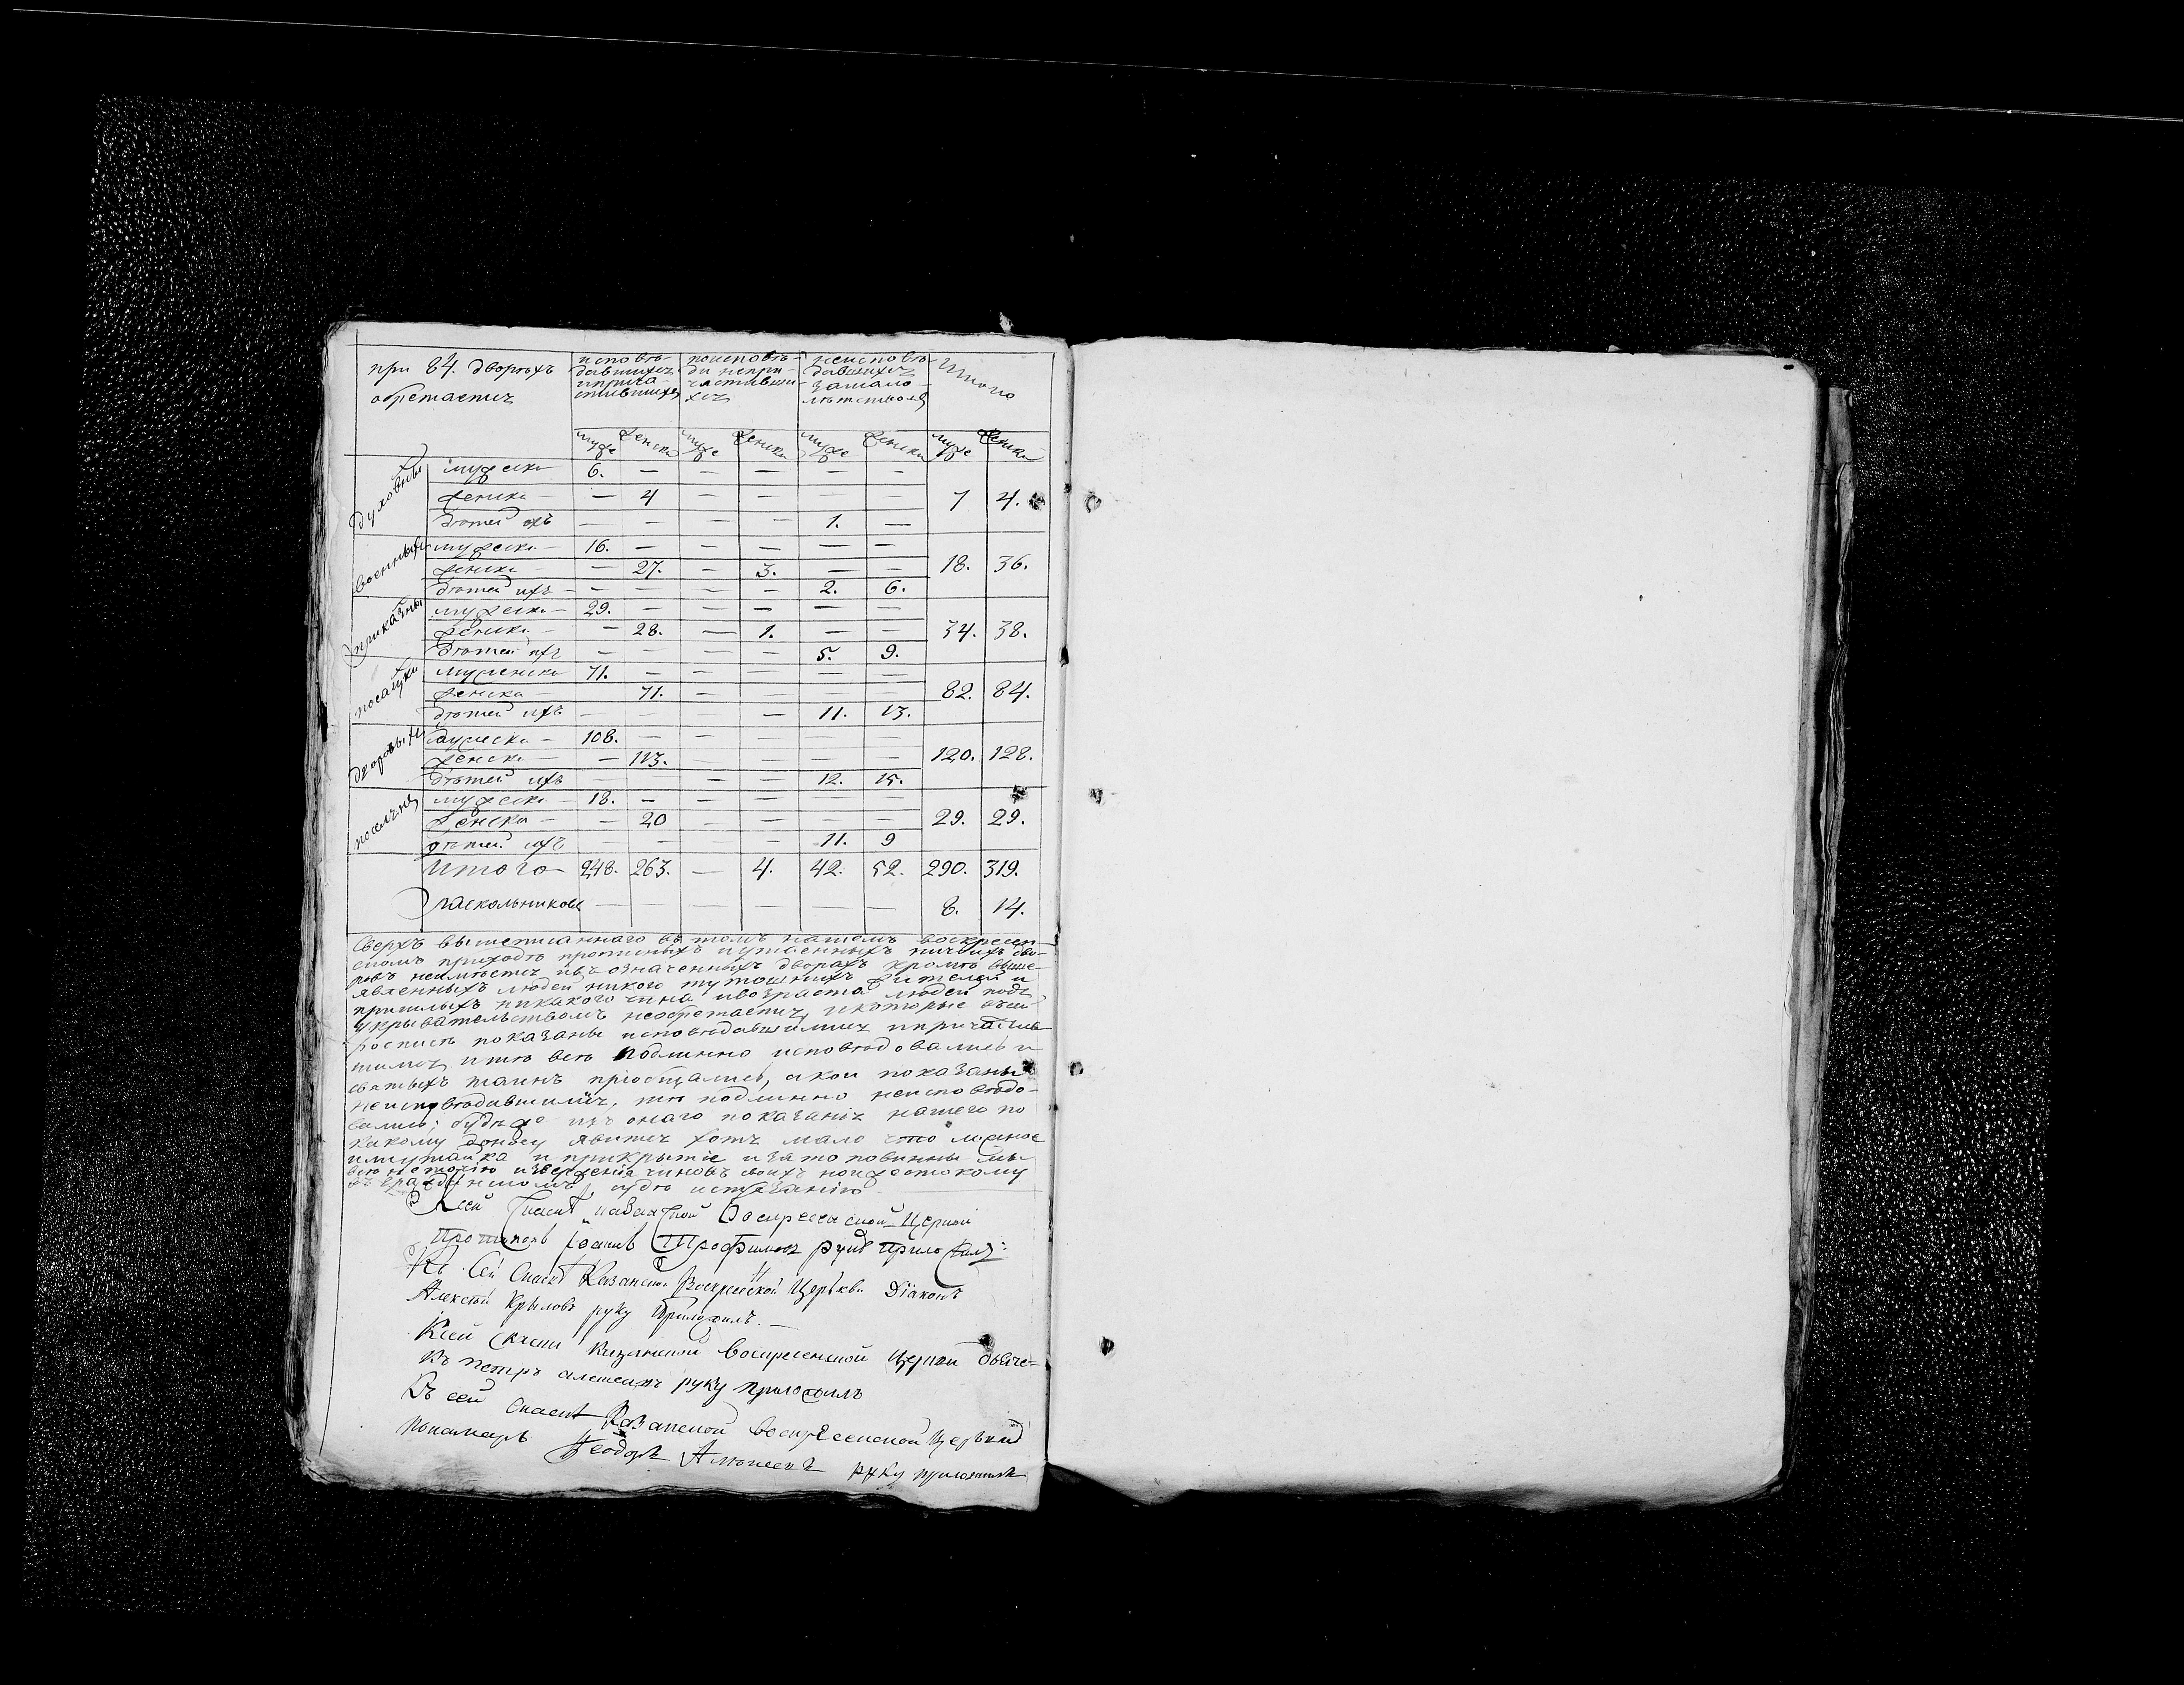 при 84. дворѣхъ обрѣтаетца
исповѣ- давшихся ипріча- стившихся
поисповѣ- ди непри- частивши- хся
неисповѣ- давшихся замало- лѣтством
Итого
муже женска муже женска муже женска муже женска
духовны мужеска 6. — — — — —
женска — 4 — — — — 7 4.
дѣтей ихъ — — — — 1. —
военныхъ мужеска — 16. — — — — —
женска — 27. — 3. — — 18. 36.
дѣтей ихъ — — — — — 2. 6.
приказны мужеска — 29. — — — — —
женска — — 28. — 1. — — 34. 38.
дѣтей ихъ — — — — 5. 9.
посацки мужеска 71. — — — — —
женска — 71. — — — — 82. 84.
дѣтей ихъ — — — — 11. 13.
дворовыхъ мужеска — 108. — — — — —
женска — — 113. — — — 120. 128.
дѣтей ихъ — — — 12. 15.
поселяня мужеска — 18. — — —
женска — — 20 — — — — 29. 29.
дѣтей ихъ — — — — 11. 9
Итого — 248. 263. — 4. 42. 52. 290. 319.
раскольниковъ — — — — — — 8. 14.
Сверхъ вышеписаннаго въ томъ нашемъ воскресен-
скомъ приходѣ прописныхъ иутаенныхъ ничьихъ дво-
ровъ неимѣется ивъ означенныхъ дворахъ кромѣ выше-
явленныхъ людей никого тутошнихъ жителей и
пришлыхъ никакого чина ивозраста людей подъ
укрывательствомъ необрѣтается, икоторые всей
росписѣ показаны исповѣдавшимися ипричастив-
шимися итѣ всѣ подлинно исповѣдовались и
святыхъ таинъ пріобщались, акои показаны
неисповѣдавшимися, тѣ подлинно неисповѣдо-
вались; будеже изъ онаго показанія нашего по
какому доносу явится хотя мало что ложное
илиутайка и прикрытіе изато повинны мы
всѣ изверженія чиновъ своихъ ижестокому
въ гражданскомъ судѣ истязанію
Ксей Воскресенской Церкви
Протопопъ Іоаннъ Трофимовъ руку приложилъ:
Къ Сей Казанской Воскресенской Церькви Діаконъ
Алексѣй Крыловъ руку Приложилъ. —
Ксей Казанской Воскресенской Церкви дьяче-
къ петръ алексеевъ руку приложилъ
Къ сей Казанской воскресенской Церькви
пономарь Ѳеодоръ Алексеевъ руку приложилъ